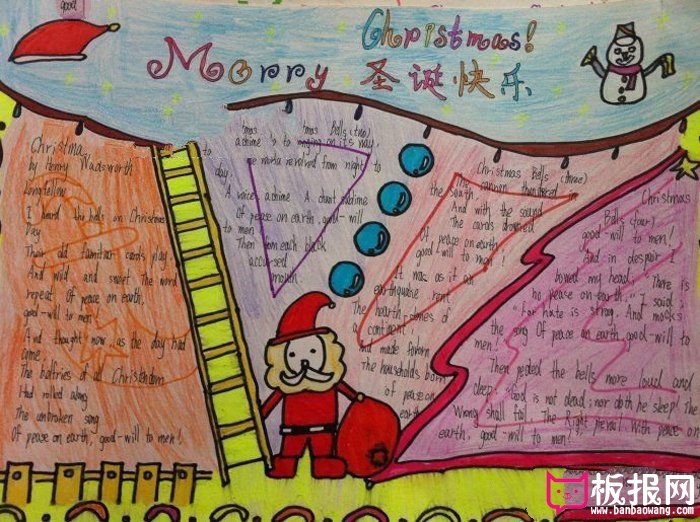 good
Christmas!
Merry 圣诞快乐
Christmas
by Henry Wadsworth
Longfellow
I heard the bells on Christmas
Day
Their old familiar carols play,
And wild and sweet The word
repeat Of peace on earth,
good-will to men!
And thought now as the day had
come
The belfries of all Christendom
Had rolled along
The unbroken song
Of peace on earth, good-will to men!
Bells (two)
on its way,
to
The world revolved from night to
day,
A voice, a chime A chant sublime
Of peace on earth, good-will
to men!
Then from each black
accursed
mouth
Christmas Bells (three)
The cannon thundered
the South
And with the sound
The carols drowned
Of peace on earth
good-will to men!
It was as if an
earthquake rent
The hearth-stones of
a continent
And made forlorn
The households born
Of peace on
earth
Christmas
Bells (four)
good-will to men!
And in despair I
bowed my head. There is
no peace on earth," I said;
"For hate is strong, And mocks
the song Of peace on earth, good-will to
men!
Then pealed the bells more loud and
deep: God is not dead; nor doth he sleep! The
Wrong shall fail, The Right prevail, With peace on
earth, good-will to men!
板报网
www.banbaowang.com